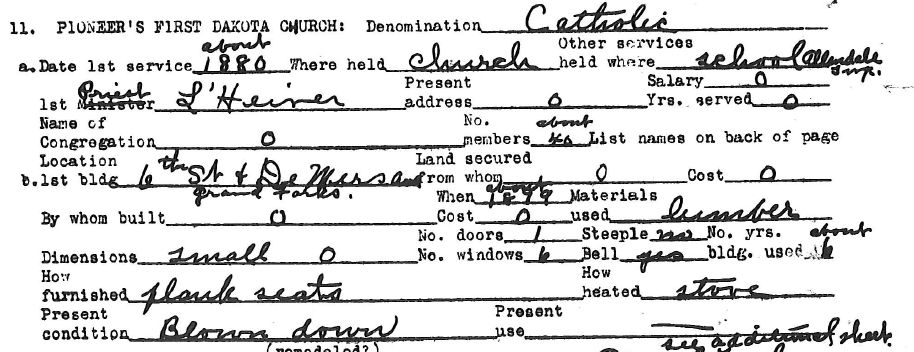 11. PIONEER'S FIRST DAKOTA CHURCH: Denomination Catholic
about Other services
a. Date 1st service 1880 Where held Church held where school Allendale Twp.
Priest Present Salary 0
1st Minister L'Heiver address 0 Yrs. served 0
Name of No. about
Congregation 0 members 40 List names on back of page
Location Land secured
b. 1st bldg 6th St & De Mers ave from whom 0 Cost 0
Grand Forks. When about 1879 Materials
By whom built 0 Cost 0 used lumber
No. doors 1 Steeple no No. yrs. about
Dimensions small 0 No. windows 6 Bell yes bldg. used 6
How How
furnished plank seats heated stove
Present Present
condition Blown down use
see additional sheet.
(remodeled?)